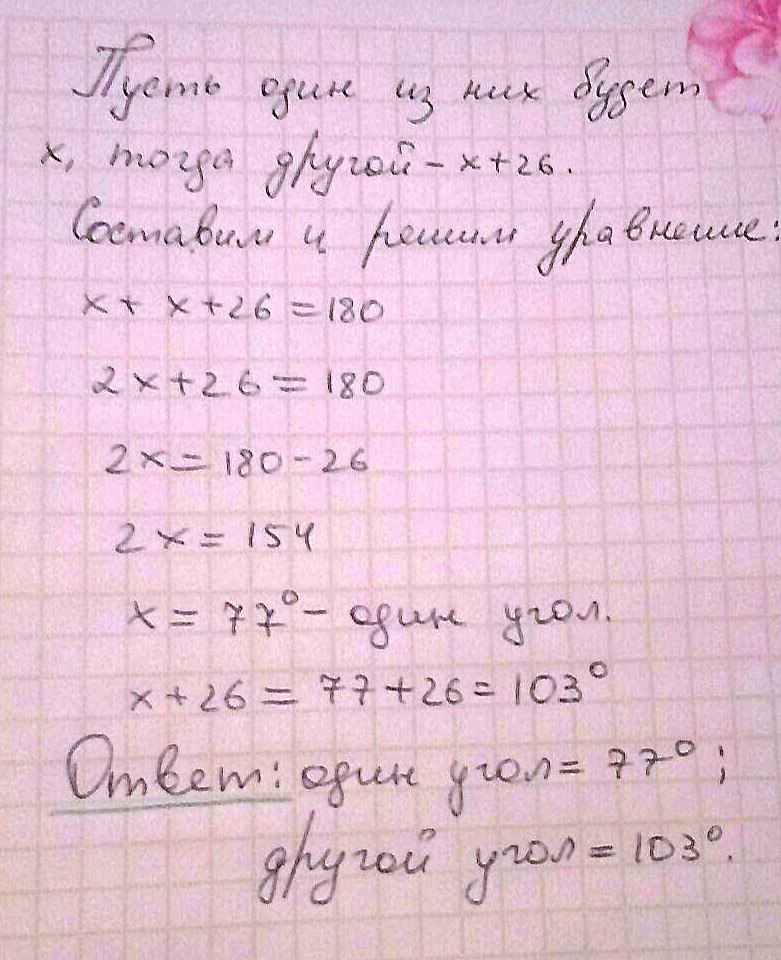 Пусть один из них будет
x, тогда другой - x+26.
Составим и решим уравнение:
x + x+26 = 180
2x+26 = 180
2x = 180-26
2x = 154
x = 77° - один угол.
x+26 = 77+26 = 103°
Ответ: один угол = 77°;
другой угол = 103°.